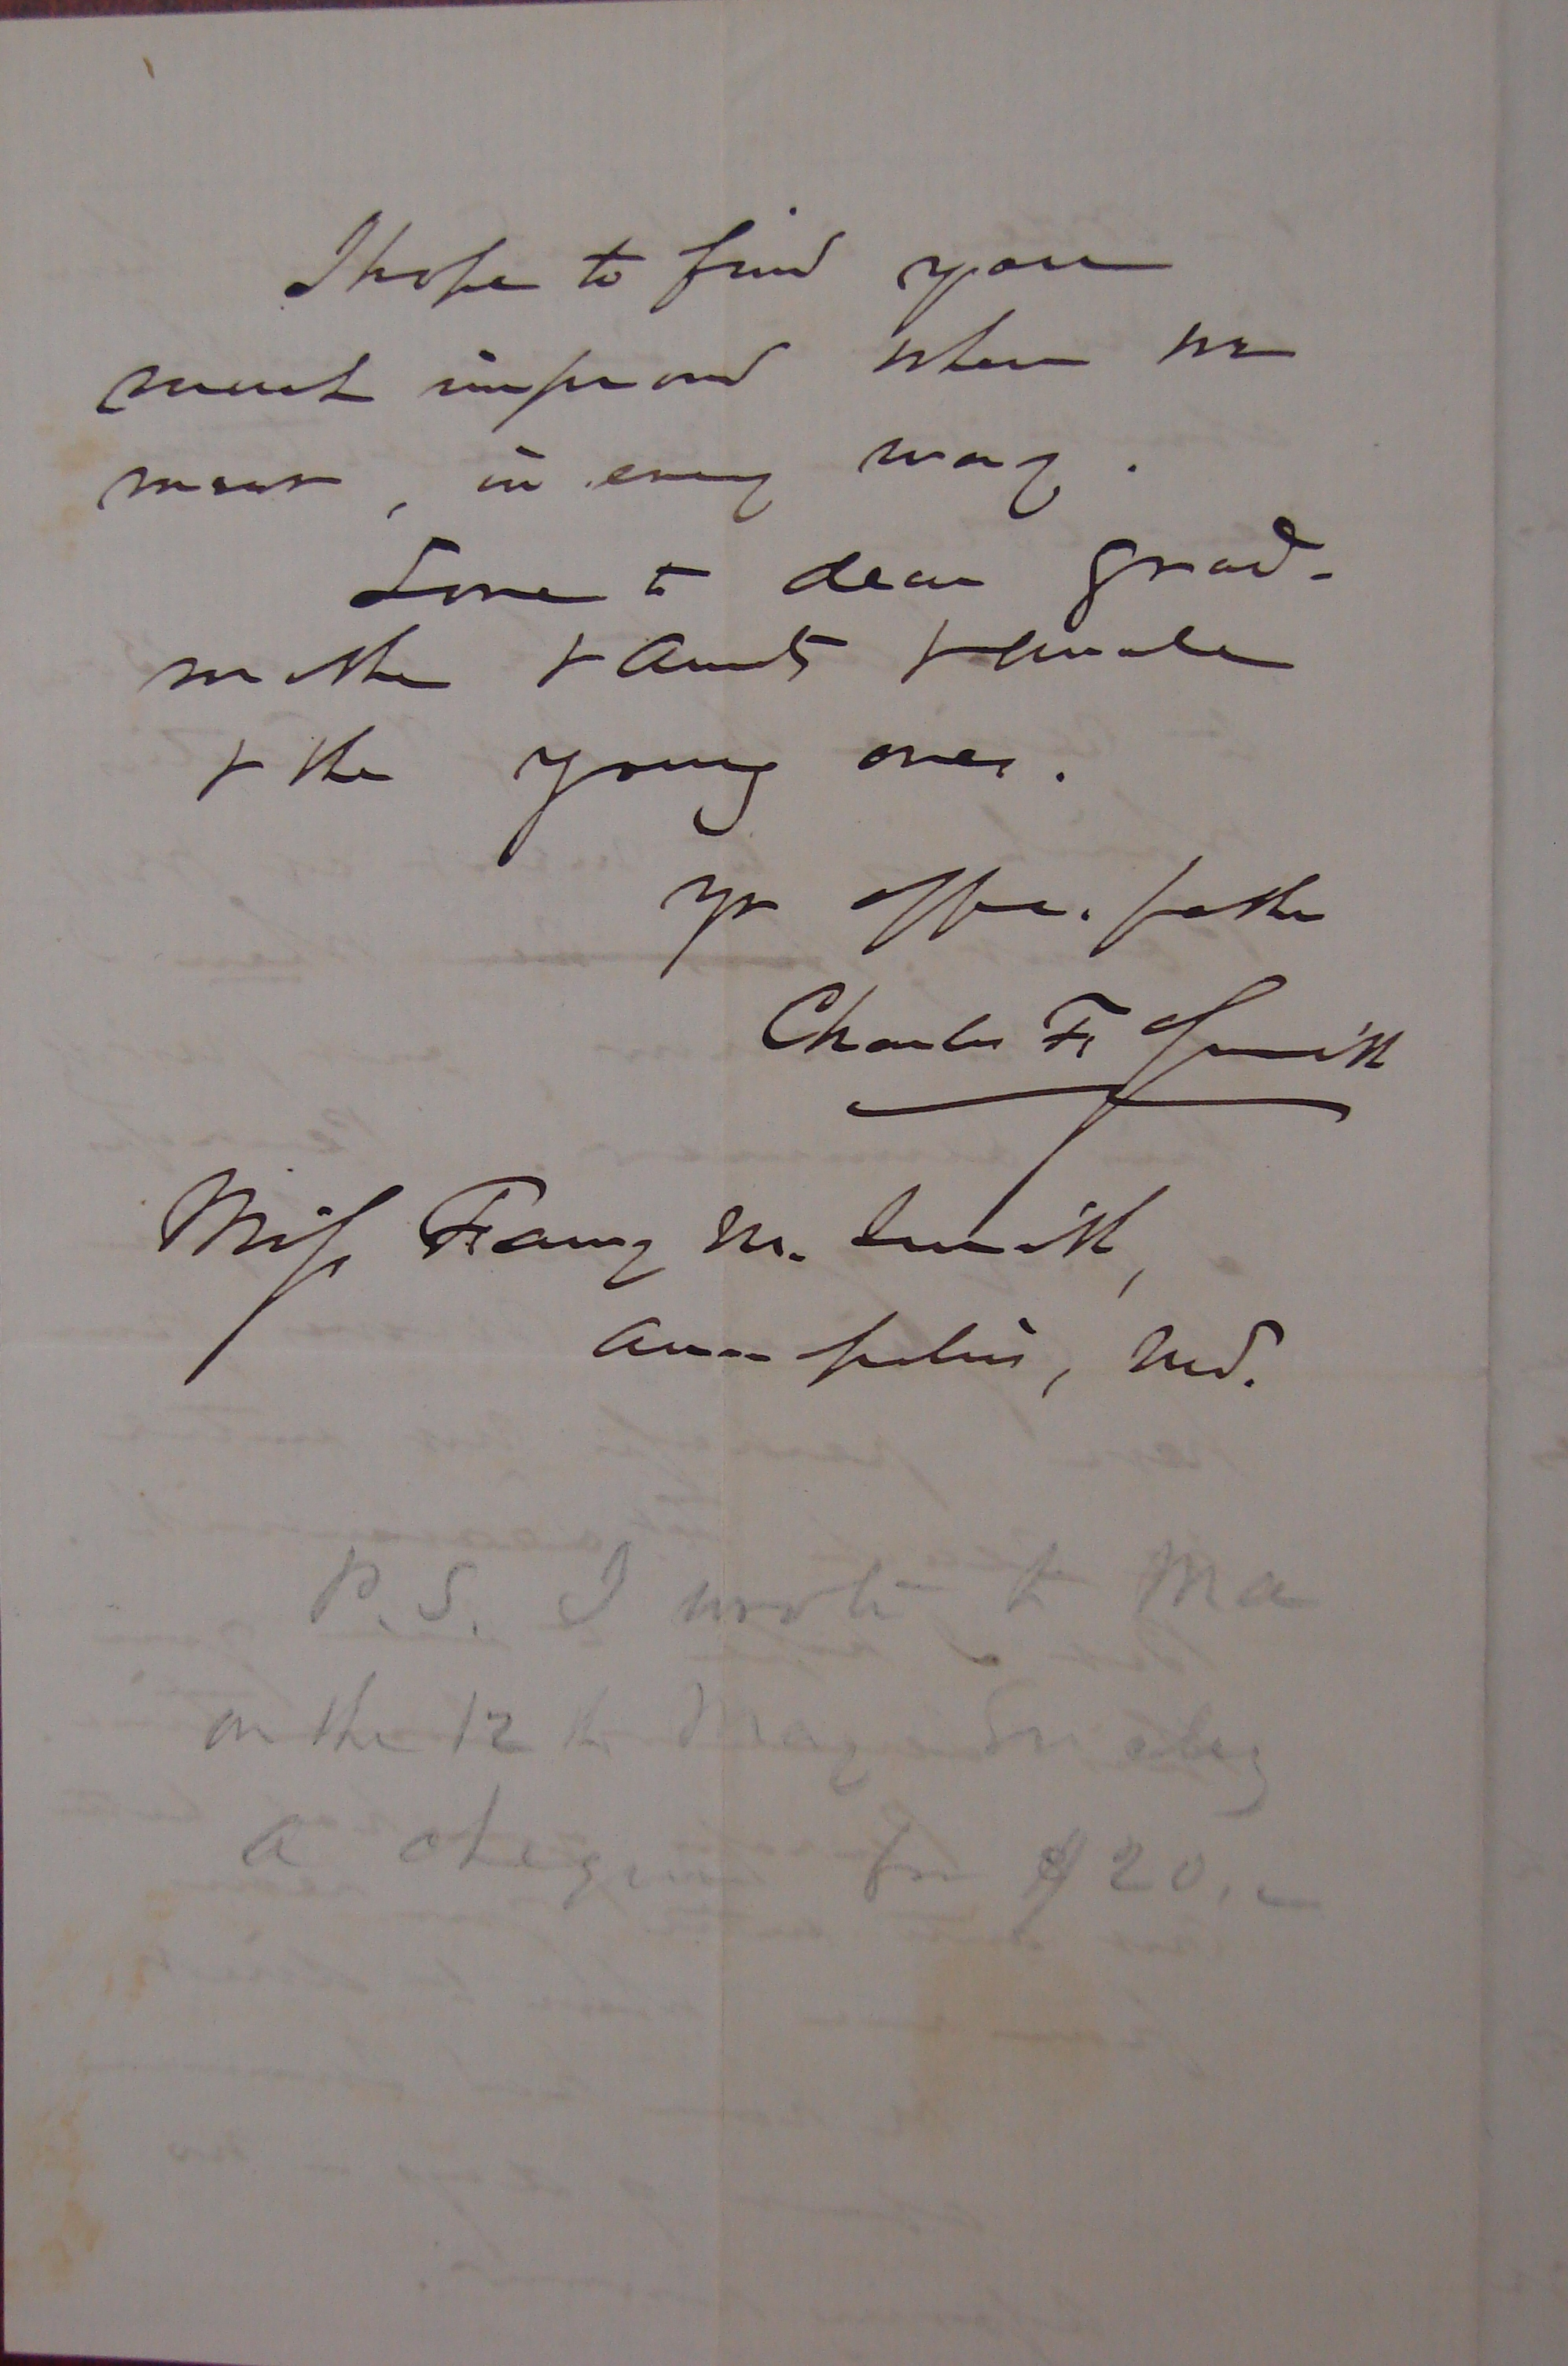 I hope to find you
much improved when we
meet, in every way.
Love to dear grand-
mother & Aunts & Uncle
& the young ones.
Yr affec. father
Charles F. Smith
Miss Fanny M. Smith,
Annapolis, Md.
P.S. I wrote to Ma
on the 12th May enclosing
a cheque for $20.